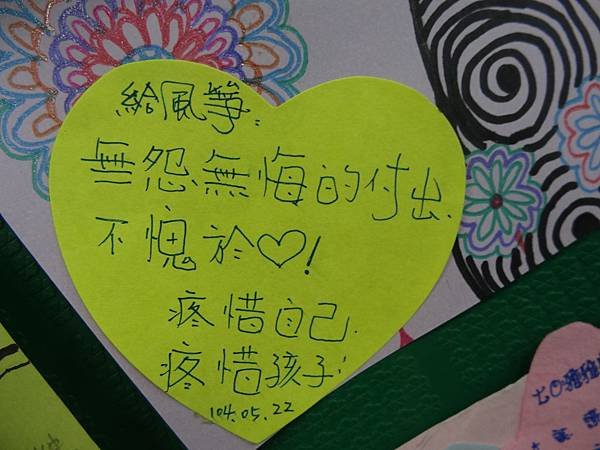 給風箏:
無怨無悔的付出.
不愧於♡!
疼惜自己.
疼惜孩子!
104.05.22